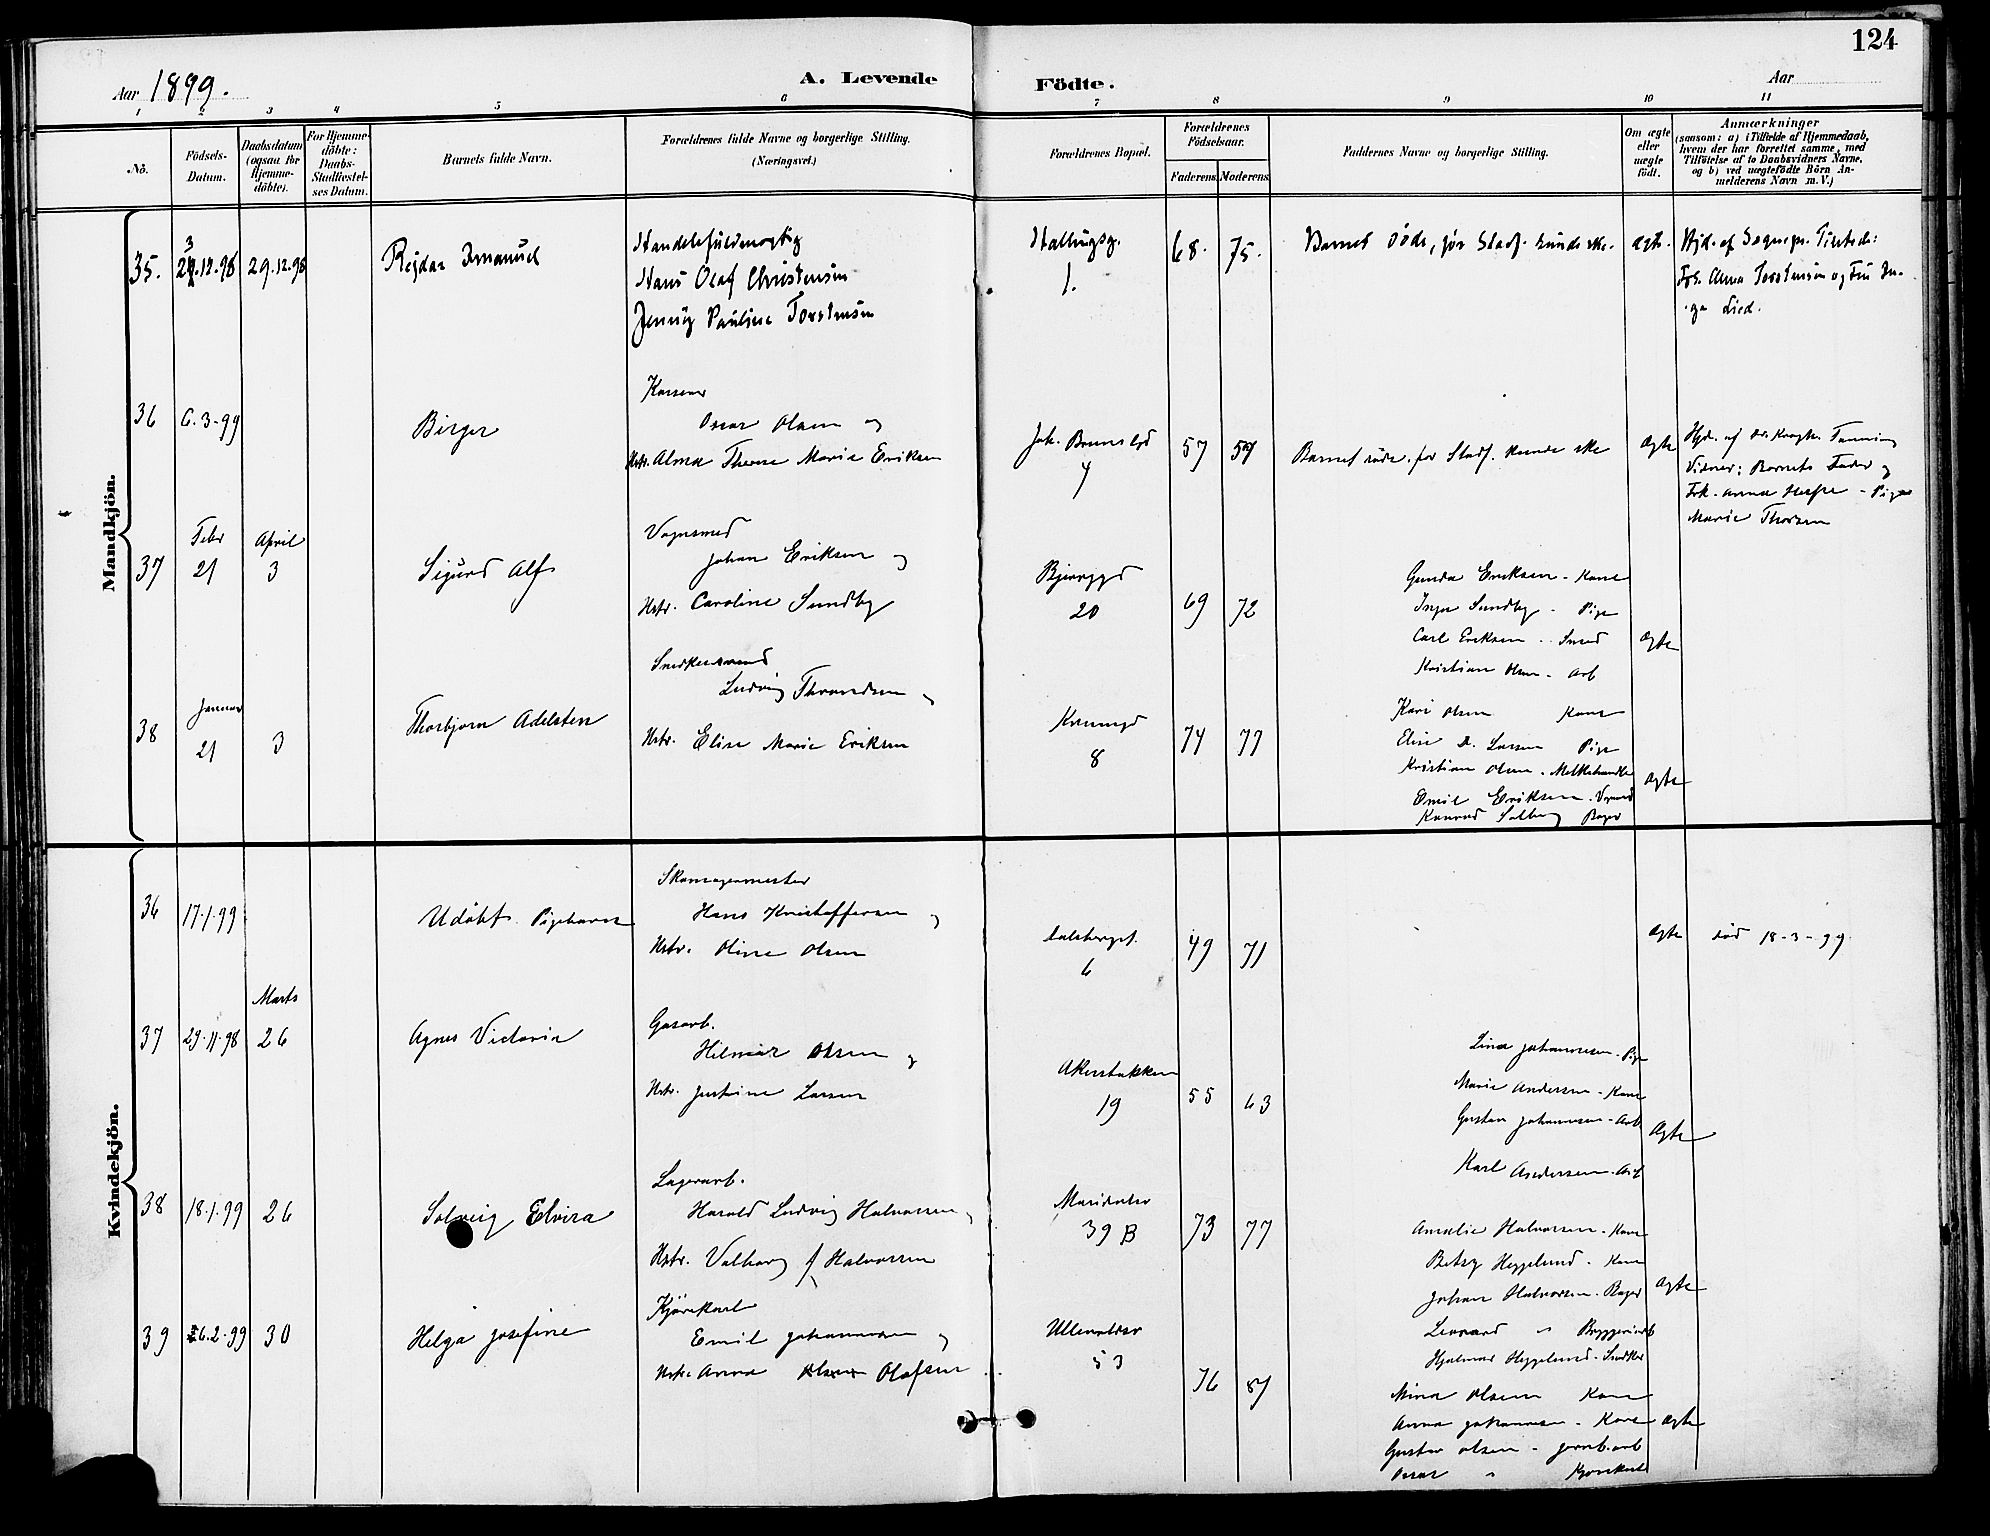 124
Aar 1899.
A. Levende Födte.
Aar
1 2 3 4 5 6 7 8 9 10 11
No.
Födsels-
Datum.
Daabsdatum
(ogsaa for
Hjemme-
döbte).
For Hjemme-
döbte:
Daabs-
Stadfæstel-
ses Datum.
Barnets fulde Navn.
Forældrenes fulde Navne og borgerlige Stilling.
(Næringsvei.)
Forældrenes Bopæl.
Forældrenes
Födselsaar.
Faderens. Moderens.
Faddernes Navne og borgerlige Stilling.
Om ægte
eller
uægte
födt.
Anmærkninger
(saasom: a) i Tilfælde af Hjemmedaab,
hvem der har forrettet samme, med
Tilföielse af to Daabsvidners Navne,
og b) ved uægtefödte Börn An-
melderens Navn m.V.)
Mandkjön.
35. 12.98 29.12.98
Rejdar Emanuel
Handelsfuldmægtig
Hans Olaf Christensen
Jenny Pauline Torstensen
1.
68. 75.
Barnet döde, för Stadf. kunde ske.
ægte.
Hjd. af Sognepr.
Frk. Anna Torstensen og Frk In-
ga Lied.
36 6.3-99
Birger
Oscar Olsen og
Hstr. Alma Therese Marie Eriksen
Joh. Brunsgd
7
57 59
Barnet döde, for Stadf. kunde ske
ægte
Hjd. af Dr.
Vidner: Barnets Fader og
Frk. Anna - Pige
Marie Thorsen
37 Febr 21 April 3
Sigurd Alf
Vognsmed
Johan Eriksen og
Hstr. Caroline Sundby
Bjerggd
20
69 72
Gunda Eriksen - Kone
Inga Sundby - Pige
Carl Eriksen - Smed
Kristian Olsen - Arb
ægte
38 Januar 21 3
Thorbjorn Adelsten
Snedkersvend
Ludvig Throndsen og
Hstr. Elise Marie Eriksen
8
74 77
Kari Olsen Kone
Elise A. Larsen Pige
Kristian Olsen - Melkehandler
Emil Eriksen -
Konrad Solberg Bager
ægte
Kvindekjön.
36 17.1.99
Udöbt Pigebarn
Skomagermester
Hans Kristoffersen og
Hstr. Oline Olsen
Dalsbergst.
6
49 71
ægte
död 18-3-99
37 29.11.98 Marts 26
Agnes Victoria
Gasarb.
Hilmar Olsen og
Hstr. Justine Larsen
Akersbakken
19
55 63
Lina Johannesen - Pige
Marie Andersen - Kone
Gustav Johannesen - Arb
Karl Andersen - Arb
ægte
38 18.1.99 26
Solveig Elvira
Lagerarb.
Harald Ludvig Halvorsen
Hstr. Valborg f Halvorsen
Maridalsv
39 B
73 77
Amalie Halvorsen - Kone
Betsy Heggelund - Kone
Johan Halvorsen - Bager
Leonard " Bryggeriarb
Hjalmar Heggelund - Snedker
ægte
39 26.2.99 30
Helga Josefine
Kjörekarl
Emil Johannesen og
Hstr. Anna Olsen Olafsen
Ullevoldsv
53
76
Mina Olsen Kone
Anna Johannesen - Kone
Gustav Olsen - Jernb.arb
Oscar " Kjörekarl
ægte